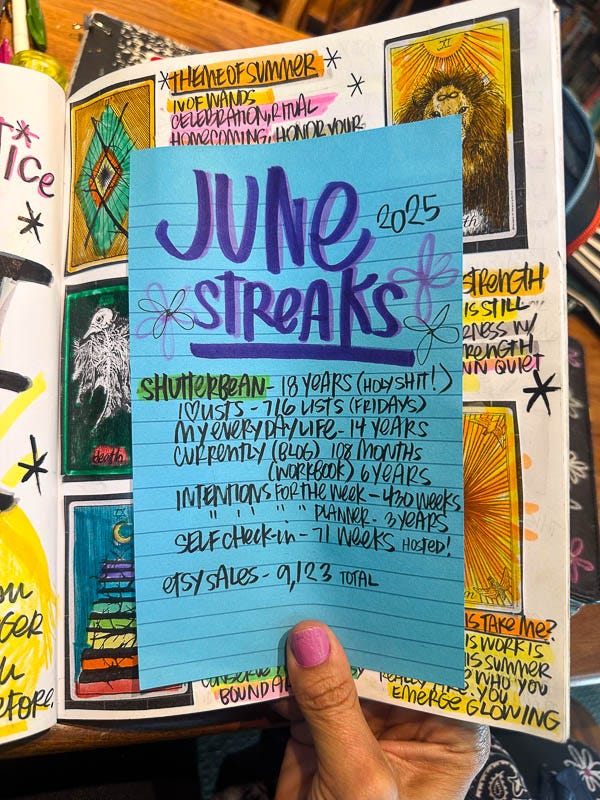 THEME OF SUMMER
IV OF WANDS
CELEBRATION, RITUAL
HOMECOMING, HONOR YOUR
TICE
XI
JUNE
2025
STREAKS
SHUTTERBEAN - 18 YEARS (HOLY SHIT!)
I ♡ LISTS - 716 LISTS (FRIDAYS)
MY EVERYDAY LIFE - 14 YEARS
CURRENTLY (BLOG) 108 MONTHS
(WORKBOOK) 6 YEARS
INTENTIONS FOR THE WEEK - 430 WEEKS
" " " " PLANNER - 3 YEARS
SELF CHECK-IN - 71 WEEKS HOSTED!
ETSY SALES - 9,123 TOTAL
STRENGTH
IS STILL
W/
STRENGTH
QUIET
death
TAKE ME?
IS WORK IS
IS SUMMER
WHO YOU
YOU
EMERGE GLOWING
BOUND